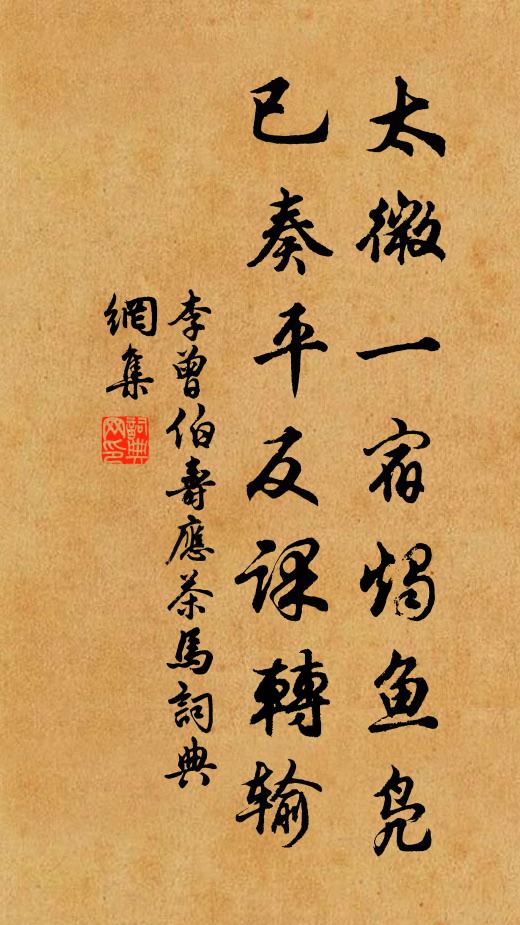 太微一宿燭鱼凫
已奏平反課轉输
李曾伯壽應茶馬詞典
網集
詞典
网印